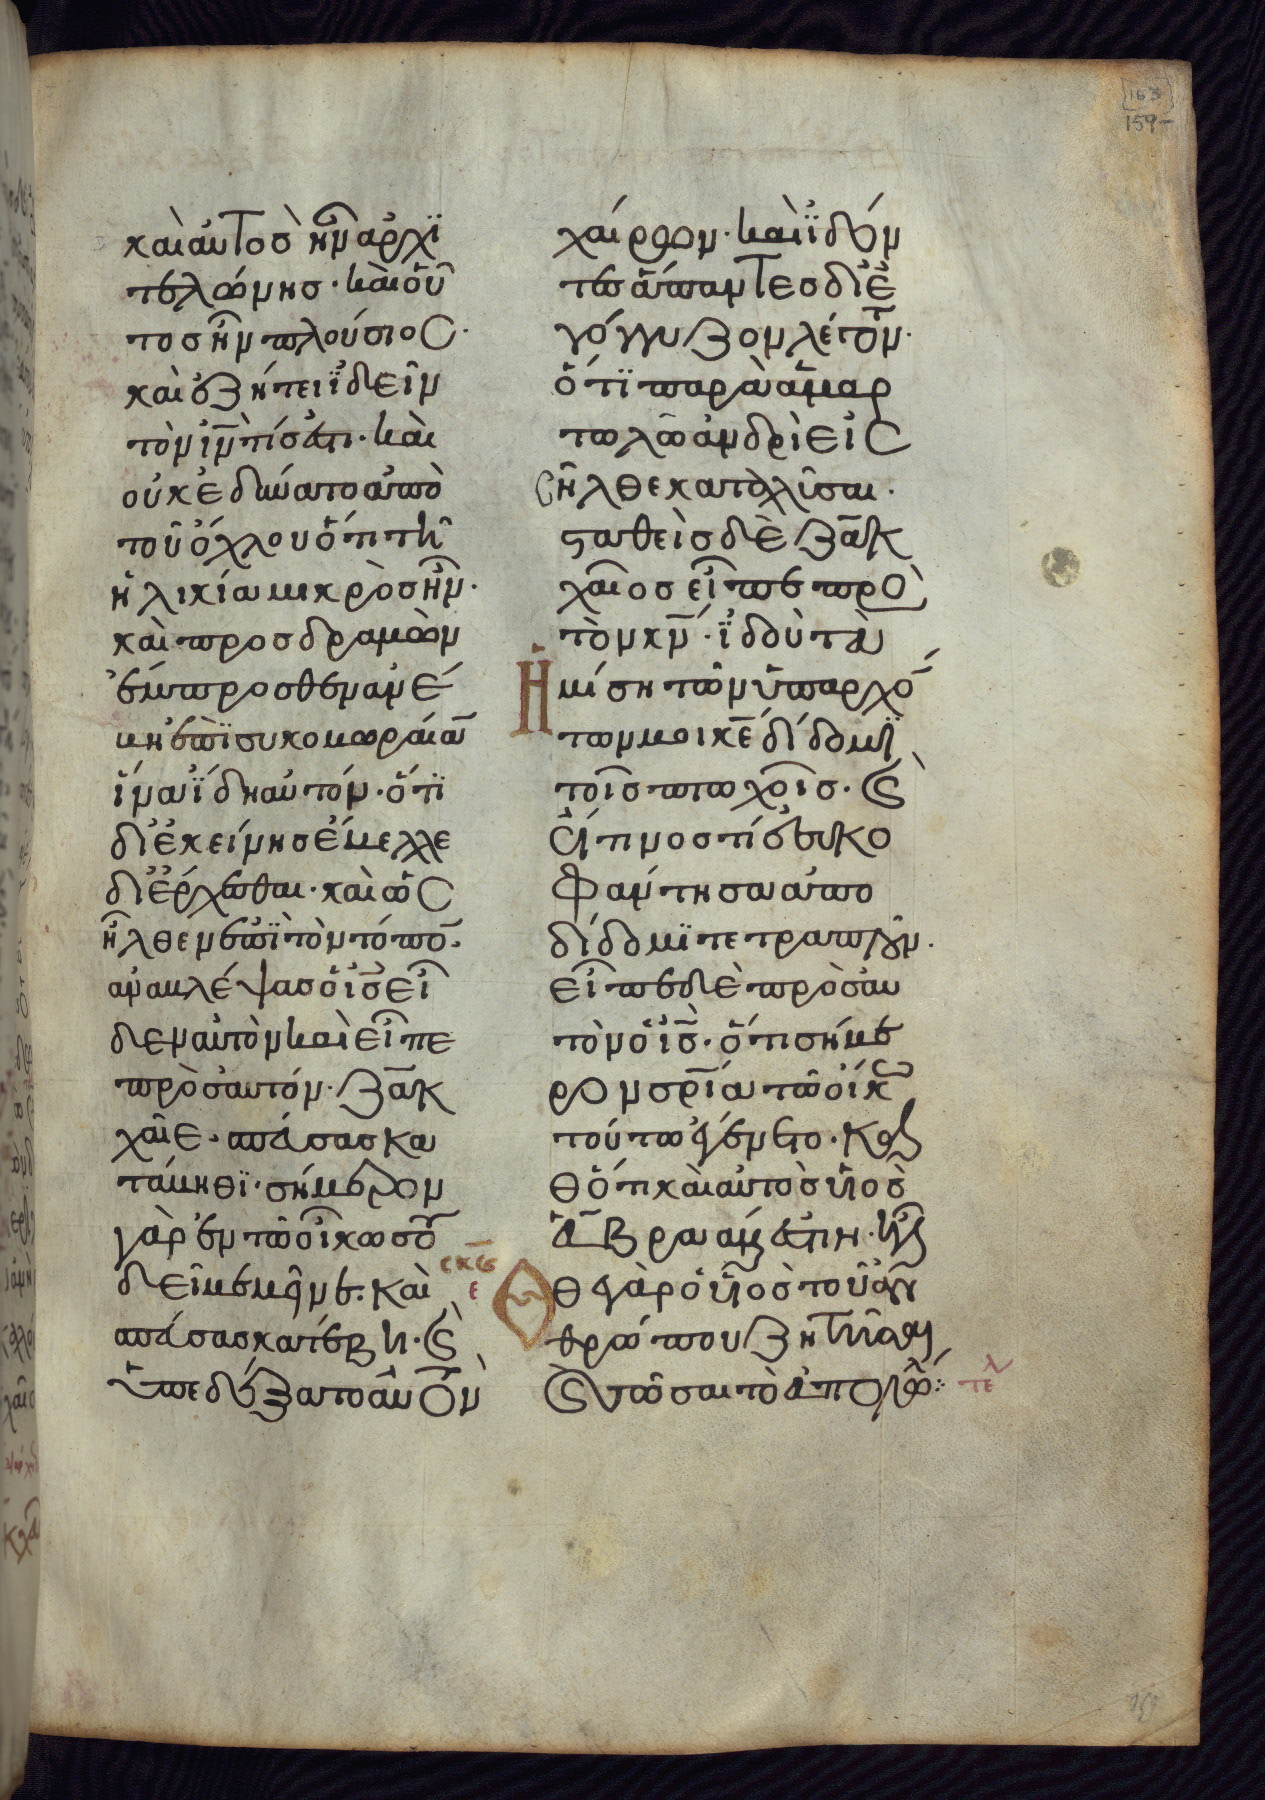 [163]
159-
καὶ αὐτὸσ ἦν ἀρχϊ
τελώνησ· καὶ οὗ
τοσ ἦν πλούσιοσ·
καὶ ἐζήτει ἰδεῖν
τὸν ῑν̄ τίσ ἐστι· καὶ
οὐκ ἐδύνατο ἀπὸ
τοῦ ὄχλου ὅτι τῆ
ἡλικία μικρὸσ ἦν·
καὶ προσδραμὼν
ἔμπροσθεν ἀνέ
βη ἐπῒ συκομωραίαν
ἵνα ἴδη αὐτόν· ὅτϊ
δι ἐκείνησ ἔμελλε
διέρχεσθαι· καὶ ὡσ
ἦλθεν ἐπῒ τὸν τόπο̄·
ἀναβλέψασ ὁ ῑσ̄ εἶ
δεν αὐτὸν καὶ εἶπε
πρὸσ αὐτόν· ζᾱκ
χαῖε· σπεύσασ κα
τάβηθϊ· σήμερον
γὰρ ἐν τῶ οἴκω σου
δεῖ με μεῖναι· καὶ
σπεύσασ κατέβη· κ(αὶ)
ὑπεδέξατο αὐτὸν
χαίρων· καὶ ἰδόν
τεσ ἅπαντεσ διε
γόγγυζον λέγοντ(εσ)·
ὅτϊ παρὰ ἁμαρ
τωλῶ ἀνδρὶ εἰσ
ῆλθε καταλῦσαι·
σταθεὶσ δὲ ζᾱκ
χαῖοσ εἶπε πρὸ(σ)
τὸν κ̄ν̄· ἰδοὺ τὰ
ἡμίση τῶν ὑπαρχό(ν)
των μοι κ̄ε̄ δίδωμϊ
τοῖσ πτωχοῖσ· κ(αὶ)
εἴ τινοσ τί ἐσυκο
φάντησα ἀπο
δίδωμϊ τετραπλοῦν·
εἶπε δὲ πρὸσ αὐ
τὸν ὁ ῑσ̄· ὅτι σήμε
ρον σ̄ρ̄ία τῶ οἴκω
τούτω ἐγένετο· καθ
ότι καὶ αὐτὸσ υἱὸσ
ἀβραάμ ἐστιν· ἦλ
σκε
ε
θε γὰρ ὁ υἱὸσ τοῦ ἀν
θρώπου ζητῆσαι
κ(αὶ) σῶσαι τὸ ἀπολωλό(σ):
τελ